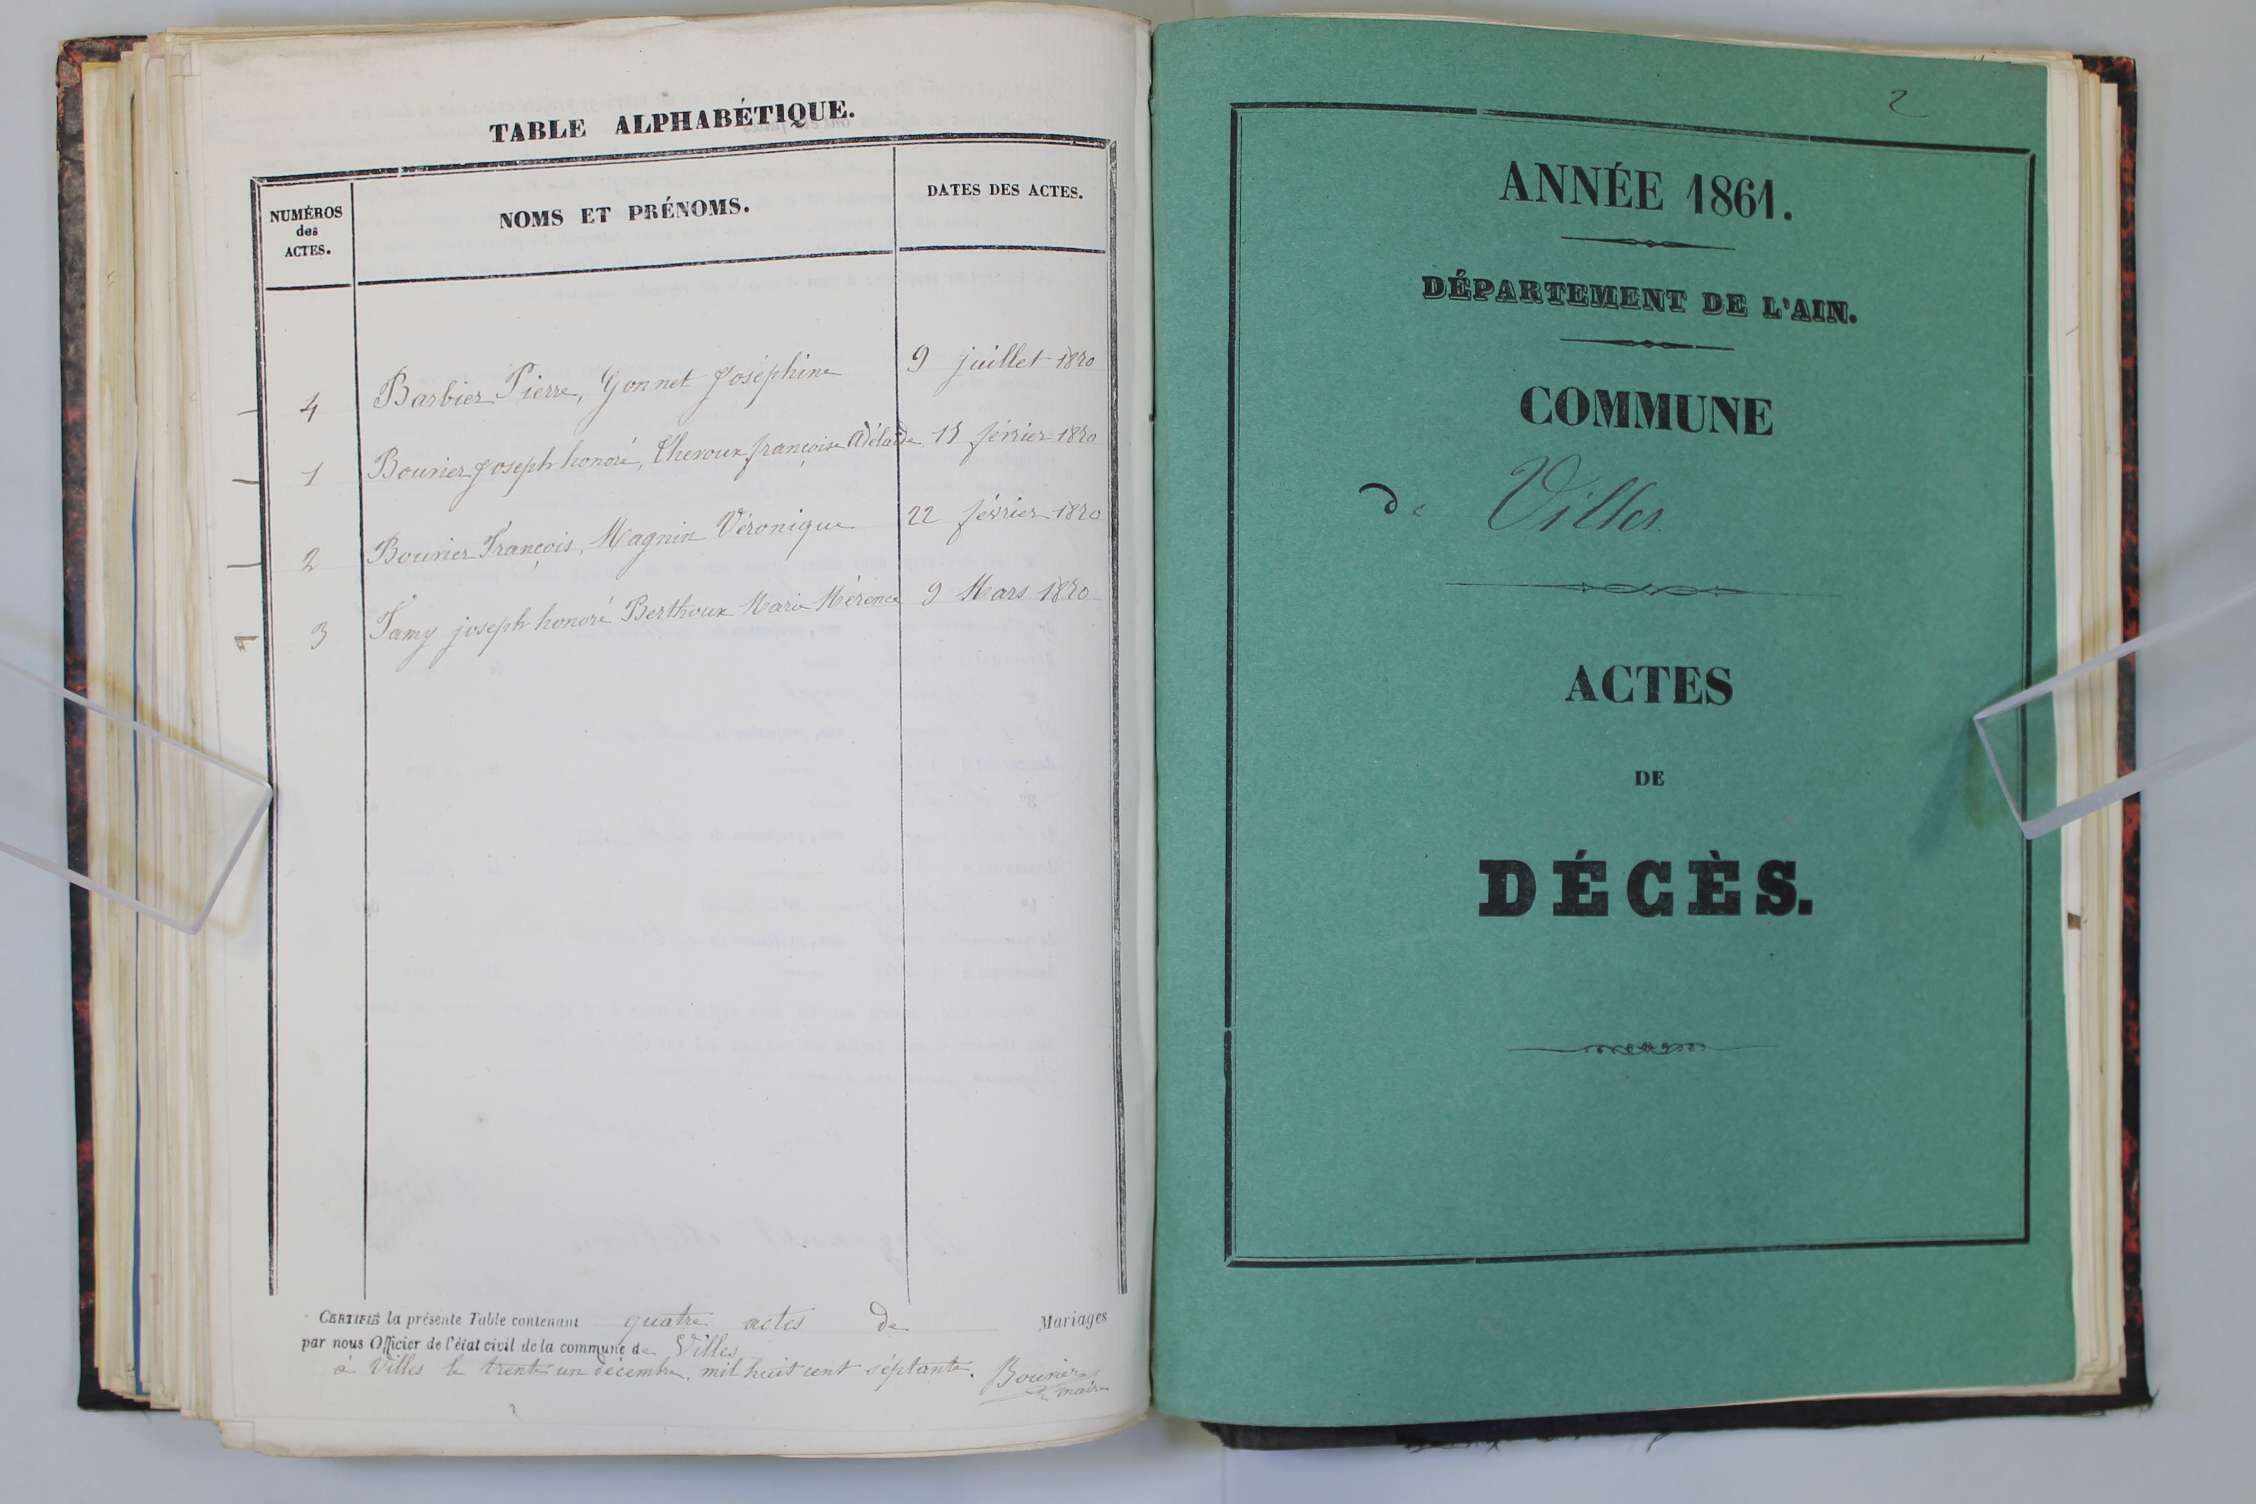 TABLE ALPHABÉTIQUE.
NUMÉROS des ACTES.
NOMS ET PRÉNOMS.
DATES DES ACTES.
4 Barbier Pierre, Gonnet Joséphine 9 juillet 1870
1 Bourier Joseph honoré, Thevoux françoise Adélaide 15 février 1870
2 Bourier François, Magnin Véronique 22 février 1870
3 Famy joseph honoré Berthoux Marie Mérence 9 Mars 1870
CERTIFIÉ la présente Table contenant quatre actes de Mariages
par nous Officier de l'état civil de la commune de Villes
à Villes le trente un décembre mil huit cent séptante.
Bourier
maire
2
ANNÉE 1861.
DÉPARTEMENT DE L'AIN.
COMMUNE
de Villes
ACTES
DE
DÉCÈS.